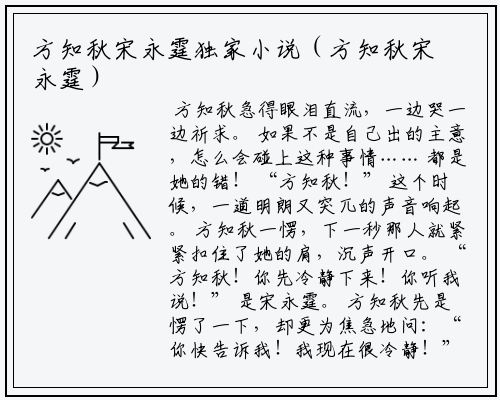 方知秋宋永霆独家小说（方知秋宋
永霆）
方知秋急得眼泪直流，一边哭一
边祈求。 如果不是自己出的主意
，怎么会碰上这种事情…… 都是
她的错！ “方知秋！” 这个时
候，一道明朗又突兀的声音响起
。 方知秋一愣，下一秒那人就紧
紧扣住了她的肩，沉声开口。 “
方知秋！你先冷静下来！你听我
说！” 是宋永霆。 方知秋先是
愣了一下，却更为焦急地问：“
你快告诉我！我现在很冷静！”